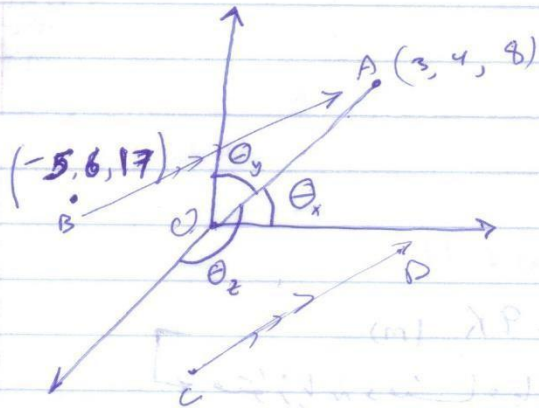 A (3, 4, 8)
(-5, 6, 17)
B
θy
θx
O
θz
D
C